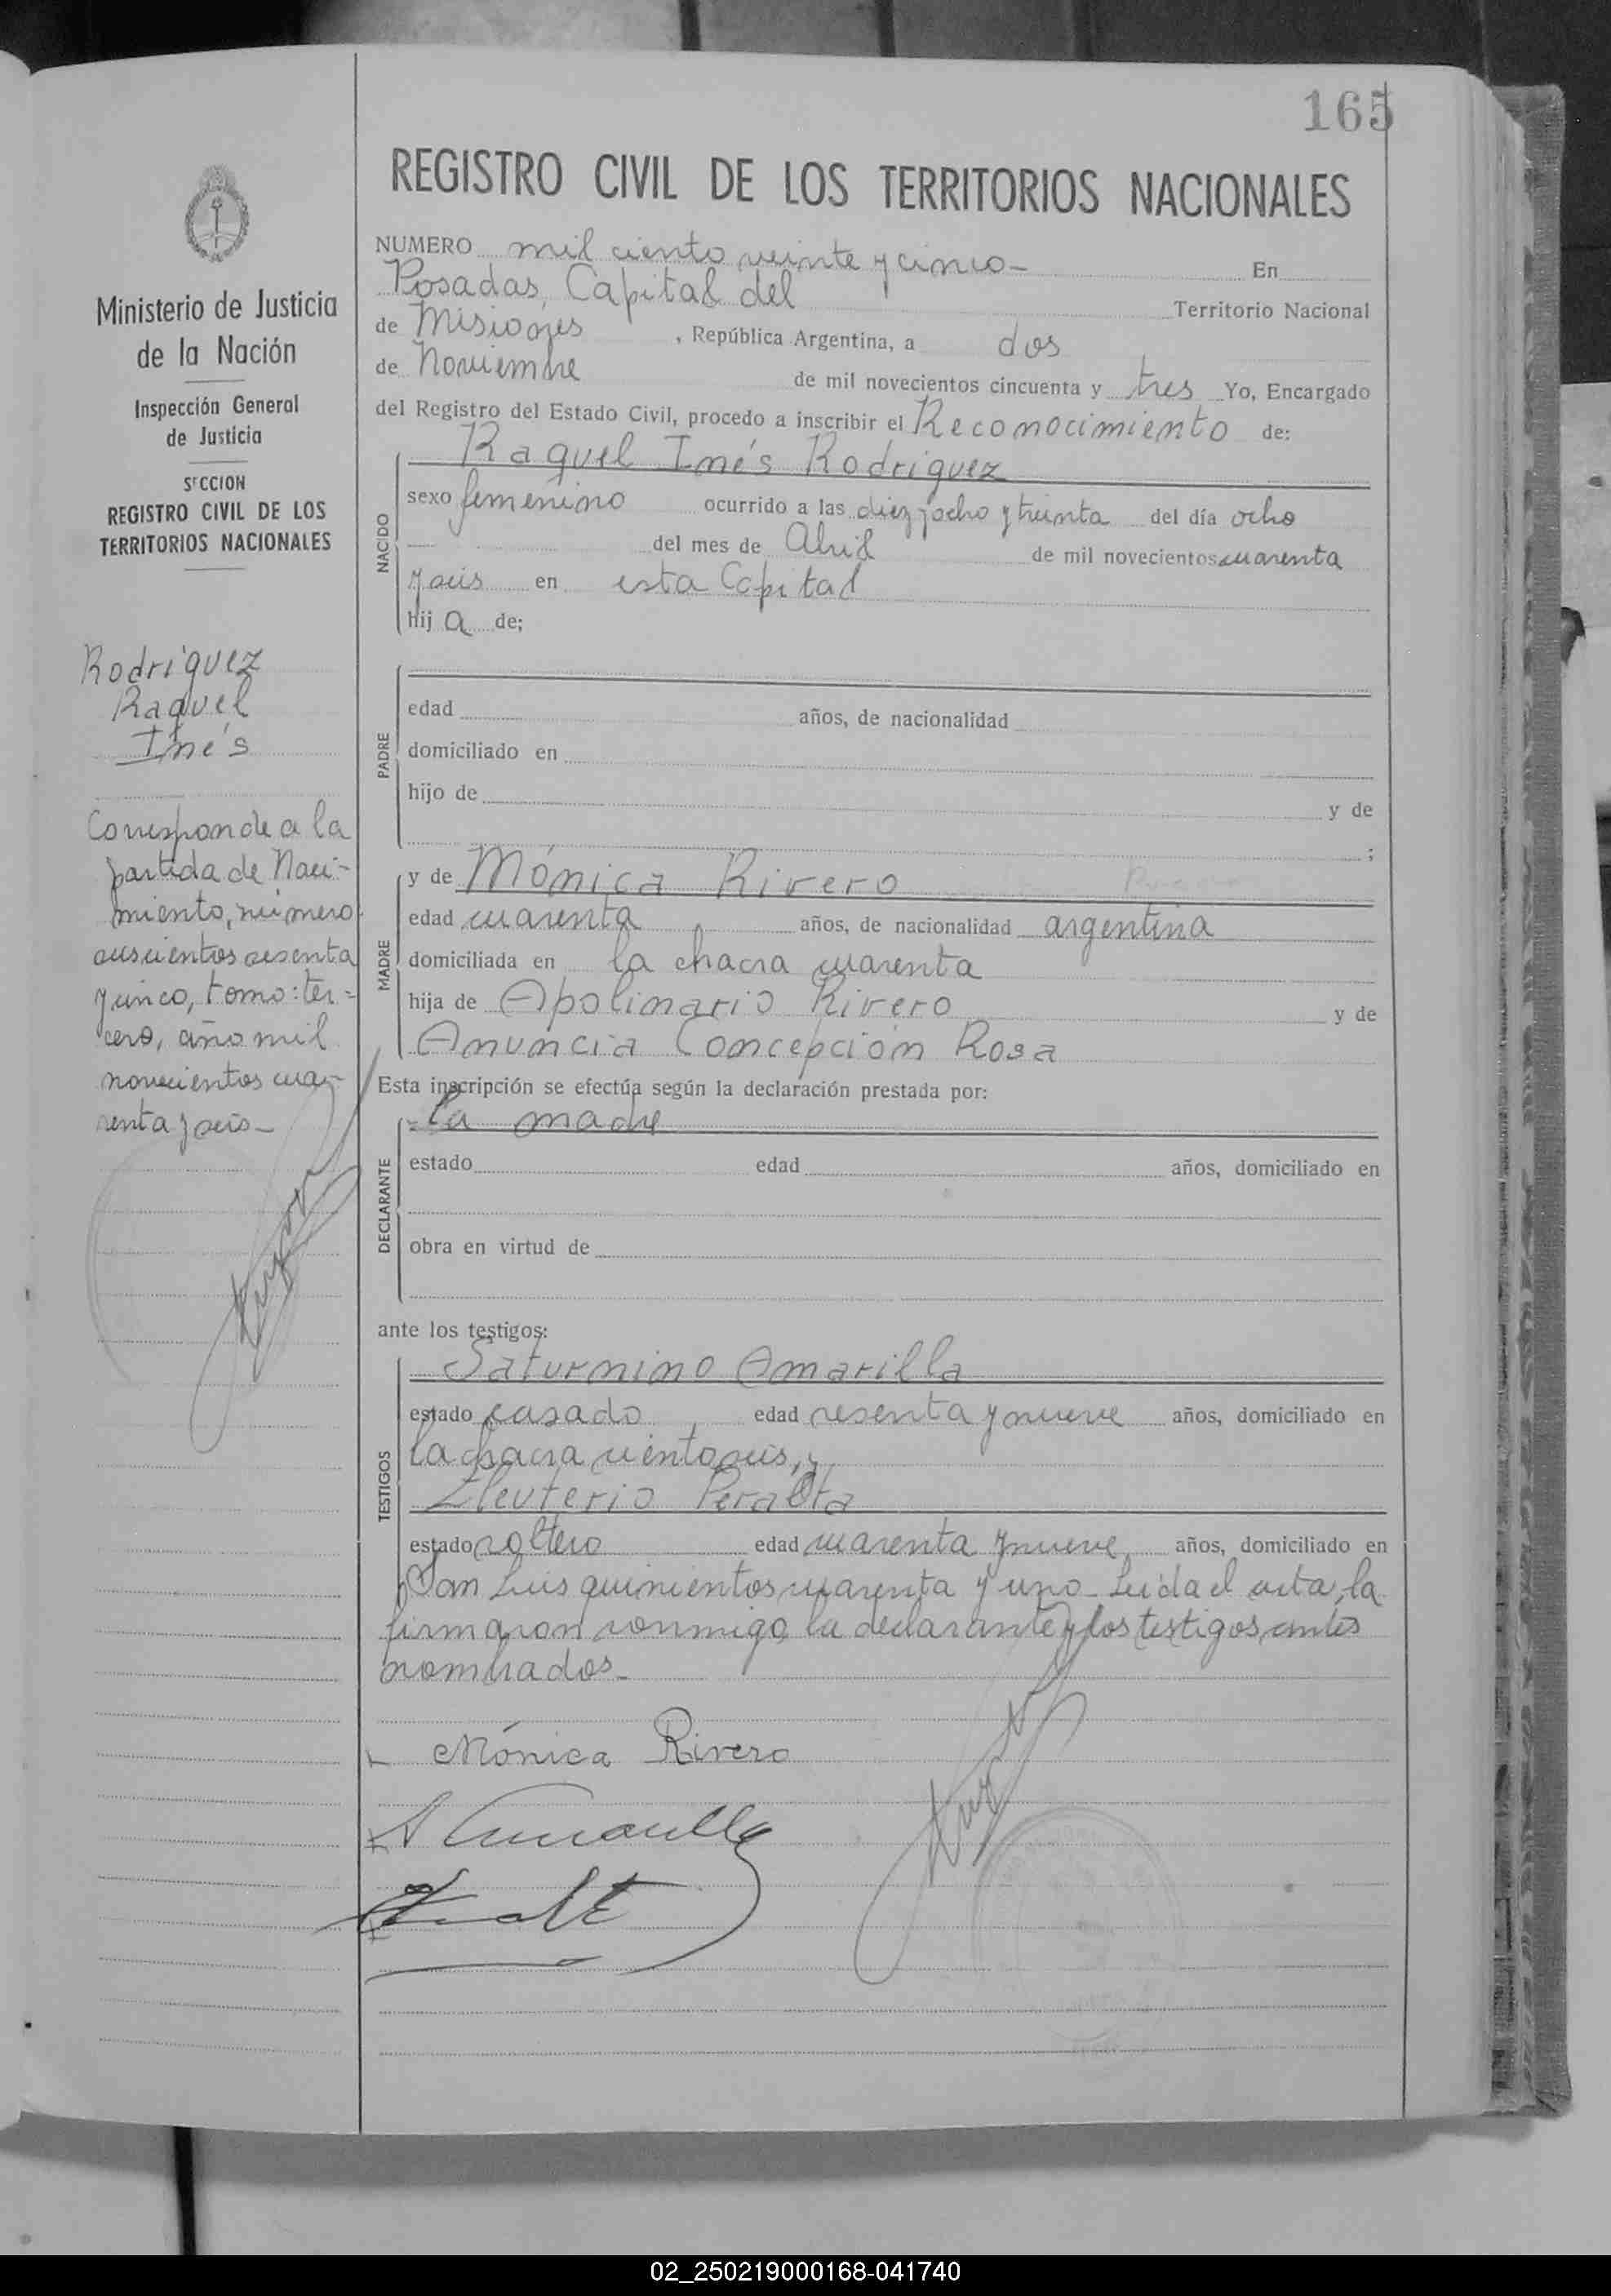 165
REGISTRO CIVIL DE LOS TERRITORIOS NACIONALES
NUMERO mil ciento veinte y cinco- En
Posadas, Capital del Territorio Nacional
de Misiones, República Argentina, a dos
de Noviembre de mil novecientos cincuenta y tres Yo, Encargado
del Registro del Estado Civil, procedo a inscribir el Reconocimiento de:
NACIDO
Raquel Inés Rodriguez
sexo femenino ocurrido a las diez y ocho y treinta del día ocho
del mes de Abril de mil novecientos cuarenta
y seis en esta Capital
hij a de;
PADRE
edad años, de nacionalidad
domiciliado en
hijo de y de
;
MADRE
y de Mónica Rivero
edad cuarenta años, de nacionalidad argentina
domiciliada en la chacra cuarenta
hija de Apolinario Rivero y de
Anuncia Concepción Rosa
Esta inscripción se efectúa según la declaración prestada por:
DECLARANTE
=la madre
estado edad años, domiciliado en
obra en virtud de
ante los testigos:
TESTIGOS
Saturnino Amarilla
estado casado, edad sesenta y nueve años, domiciliado en
la chacra ciento seis, y
Eleuterio Peralta
estado soltero edad cuarenta y nueve, años, domiciliado en
San Luis quinientos cuarenta y uno- Leída el acta, la
firmaron conmigo, la declarante y los testigos antes
nombrados-
Mónica Rivero
Ministerio de Justicia
de la Nación
Inspección General
de Justicia
SECCION
REGISTRO CIVIL DE LOS
TERRITORIOS NACIONALES
Rodriguez
Raquel
Inés
Corresponde a la
partida de Naci-
miento, número
seiscientos sesenta
y cinco, tomo: ter=
cero, año mil
novecientos cua-
renta y seis-
02_250219000168-041740